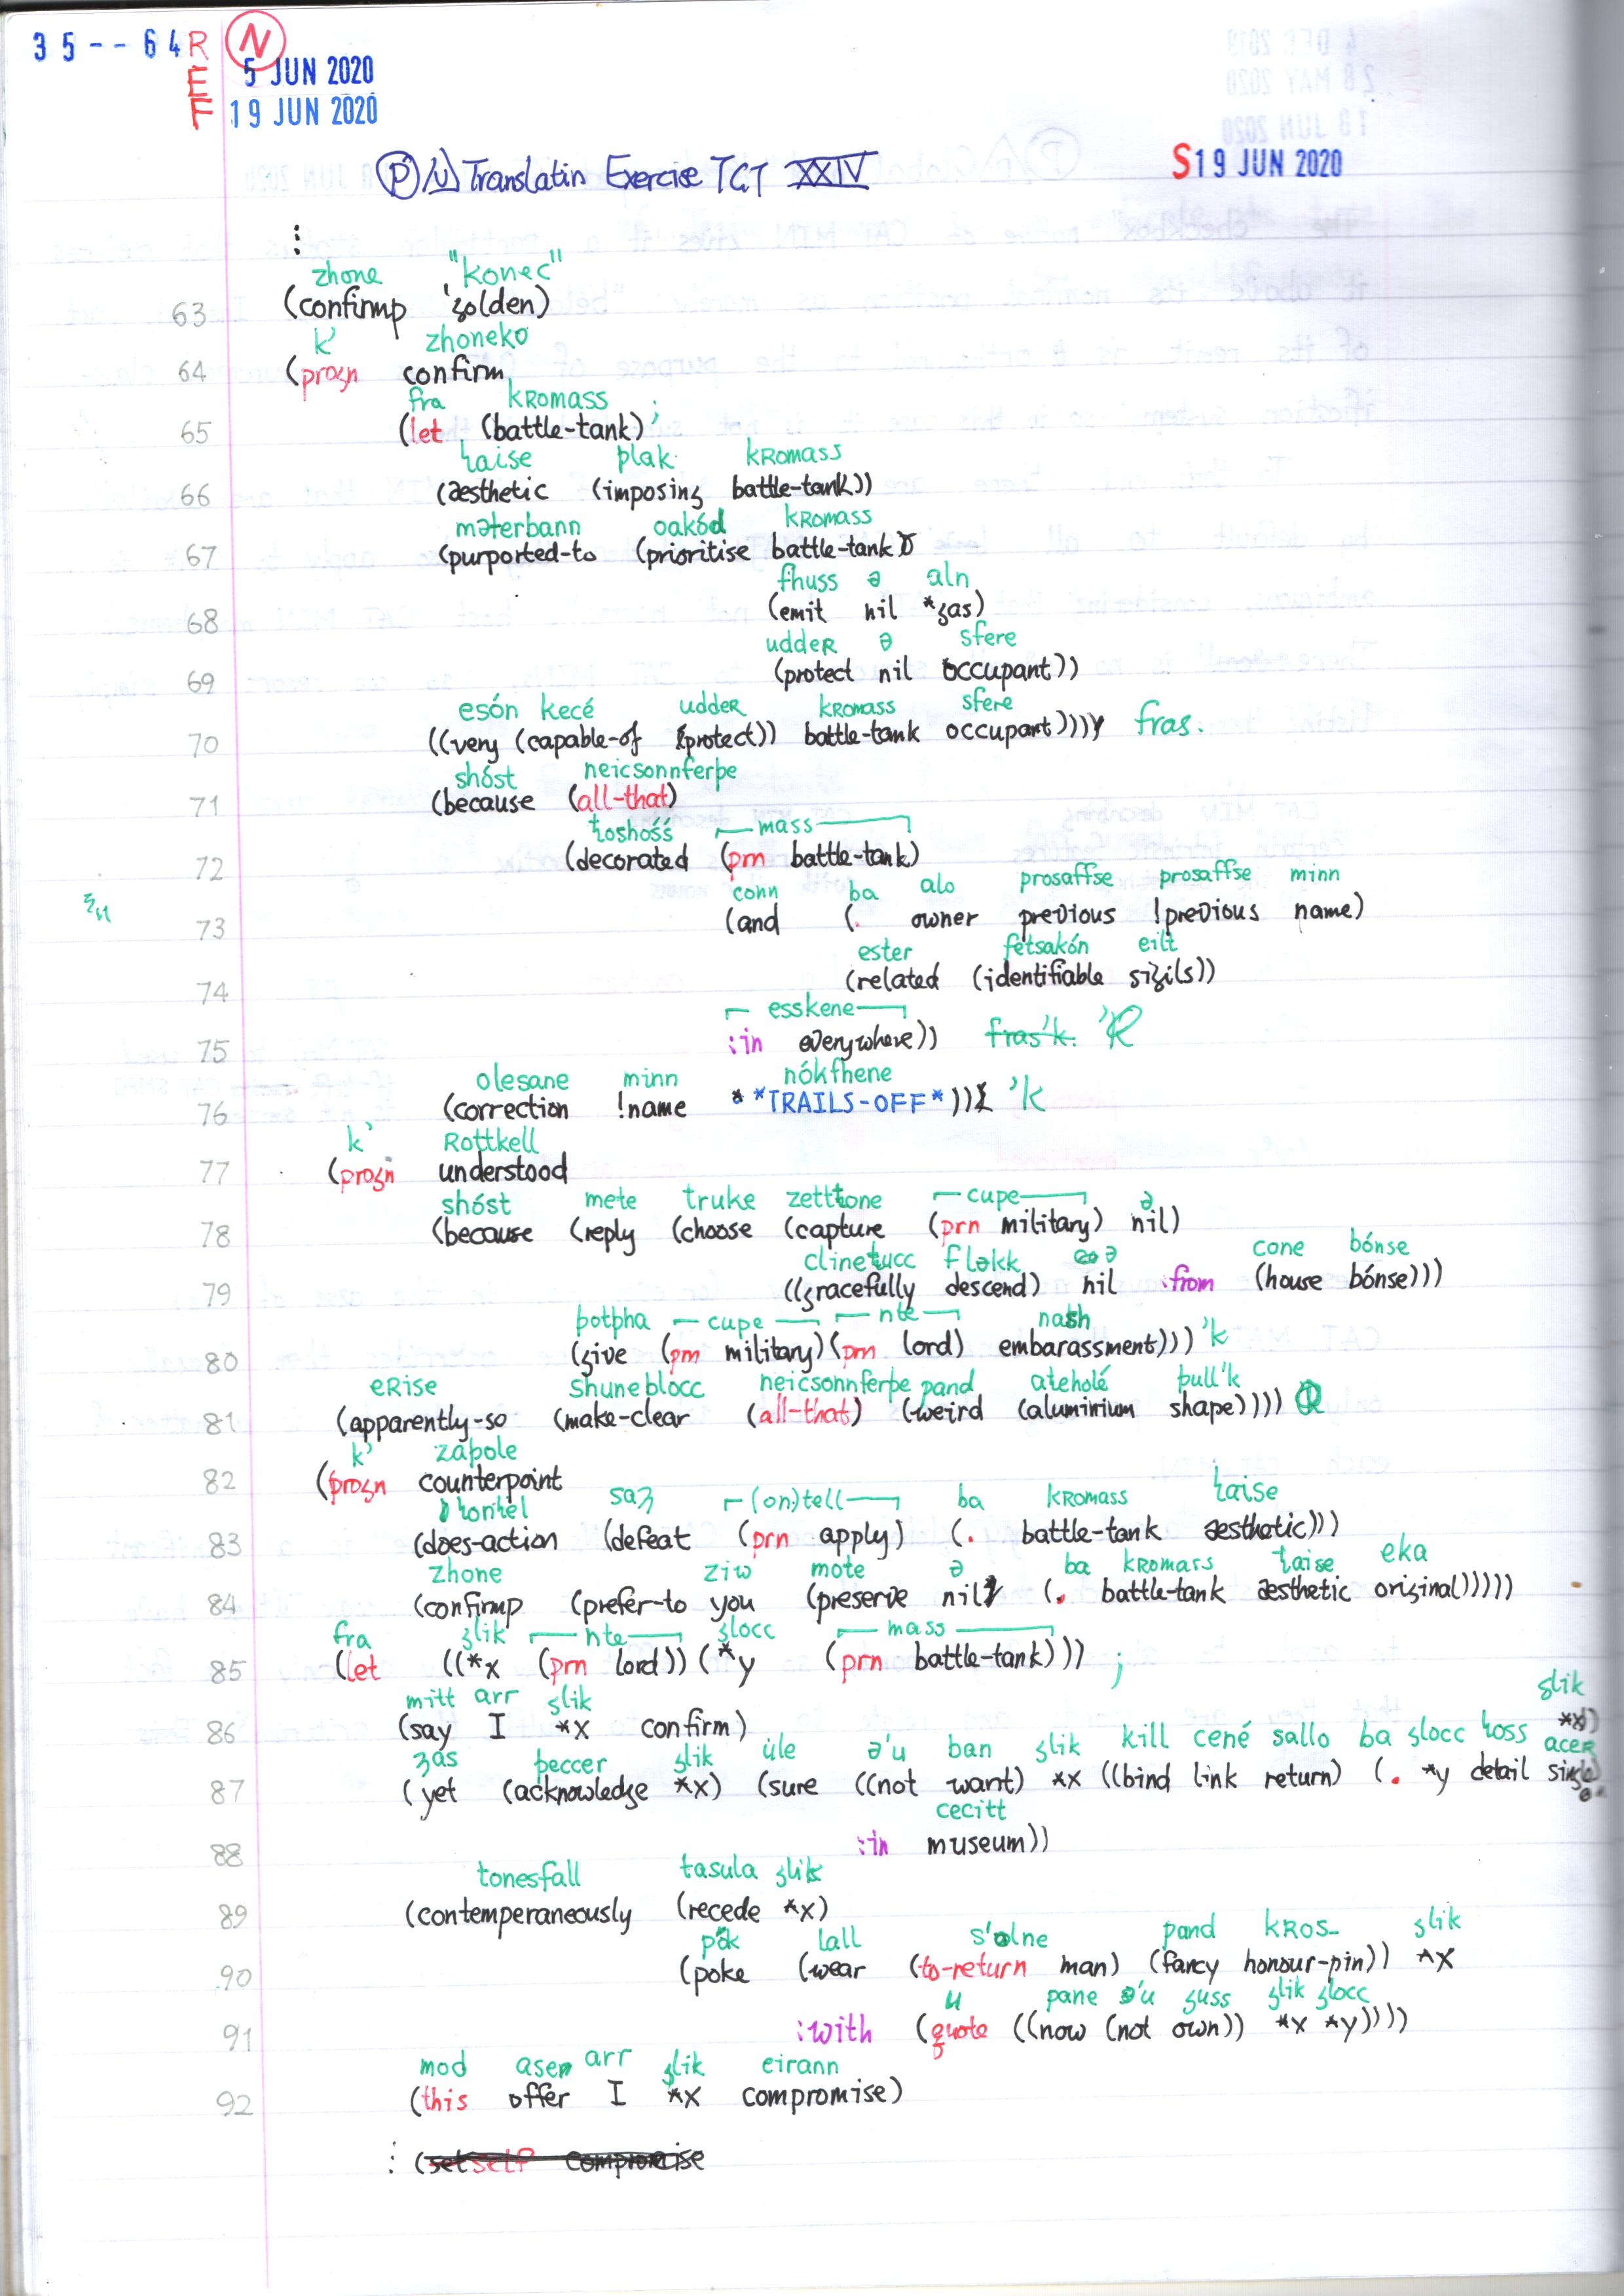 35--64 REF N
5 JUN 2020
19 JUN 2020
P /U\ Translatin Exercise TCT XXIV
S19 JUN 2020
⋮
zhone "konec"
63 (confirmp 'golden)
k' zhoneko
64 (progn confirm
fra kROMASS ;
65 (let (battle-tank)
plak kROMASS
66 (æsthetic (imposing battle-tank))
məterbann oakód kROMASS
67 (purported-to (prioritise battle-tank
fhuss ə aln
68 (emit nil *gas)
uddeR ə sfere
69 (protect nil occupant))
esón kecé uddeR kROMASS sfere
70 ((very (capable-of (protect)) battle-tank occupant)))) fras.
shóst neicsonnferþe
71 (because (all-that)
mass
72 (decorated (prn battle-tank)
conn ba alo prosaffse prosaffse minn
73 (and (. owner previous !previous name)
ester fetsakón eilt
74 (related (identifiable sigils))
esskene
75 :in everywhere)) fras'k. 'R
olesane minn nókfhene
76 (correction !name **TRAILS-OFF*))) 'k
k' Rottkell
77 (progn understood
shóst mete truke zetttone cupe ə
78 (because (reply (choose (capture (prn military) nil)
clinetucc fləkk ə cone bónse
79 ((gracefully descend) nil :from (house bónse)))
þotþha cupe nte nash
80 (give (prn military) (prn lord) embarassment))) 'k
eRise shuneblocc neicsonnferþe pand ateholé þull'k
81 (apparently-so (make-clear (all-that) (weird (aluminium shape))))
k' záþole
82 (progn counterpoint
saʒ (on)tell ba kROMASS
83 (does-action (defeat (prn apply) (. battle-tank æsthetic)))
zhone ziw mote ə ba kROMASS eka
84 (confirmp (prefer-to you (preserve nil (. battle-tank æsthetic original)))))
fra glik nte glocc mass
85 (let ((*x (prn lord)) (*y (prn battle-tank))) ;
mitt arr glik glik
86 (say I *x confirm) *x)
ʒás þeccer glik üle ə'u ban glik kill cené sallo ba glocc aceR
87 (yet (acknowledge *x) (sure ((not want) *x ((bind link return) (. *y detail single)
cecitt
88 :in museum))
tonesfall tasula glik
89 (contemperaneously (recede *x)
lall s'olne pand kROS- glik
90 (poke (wear (to-return man) (fancy honour-pin)) *x
u pane ə'u guss glik glocc
91 :with (quote ((now (not own)) *x *y))))
mod aseR arr glik eirann
92 (this offer I *x compromise)
⋮ (setself compromise